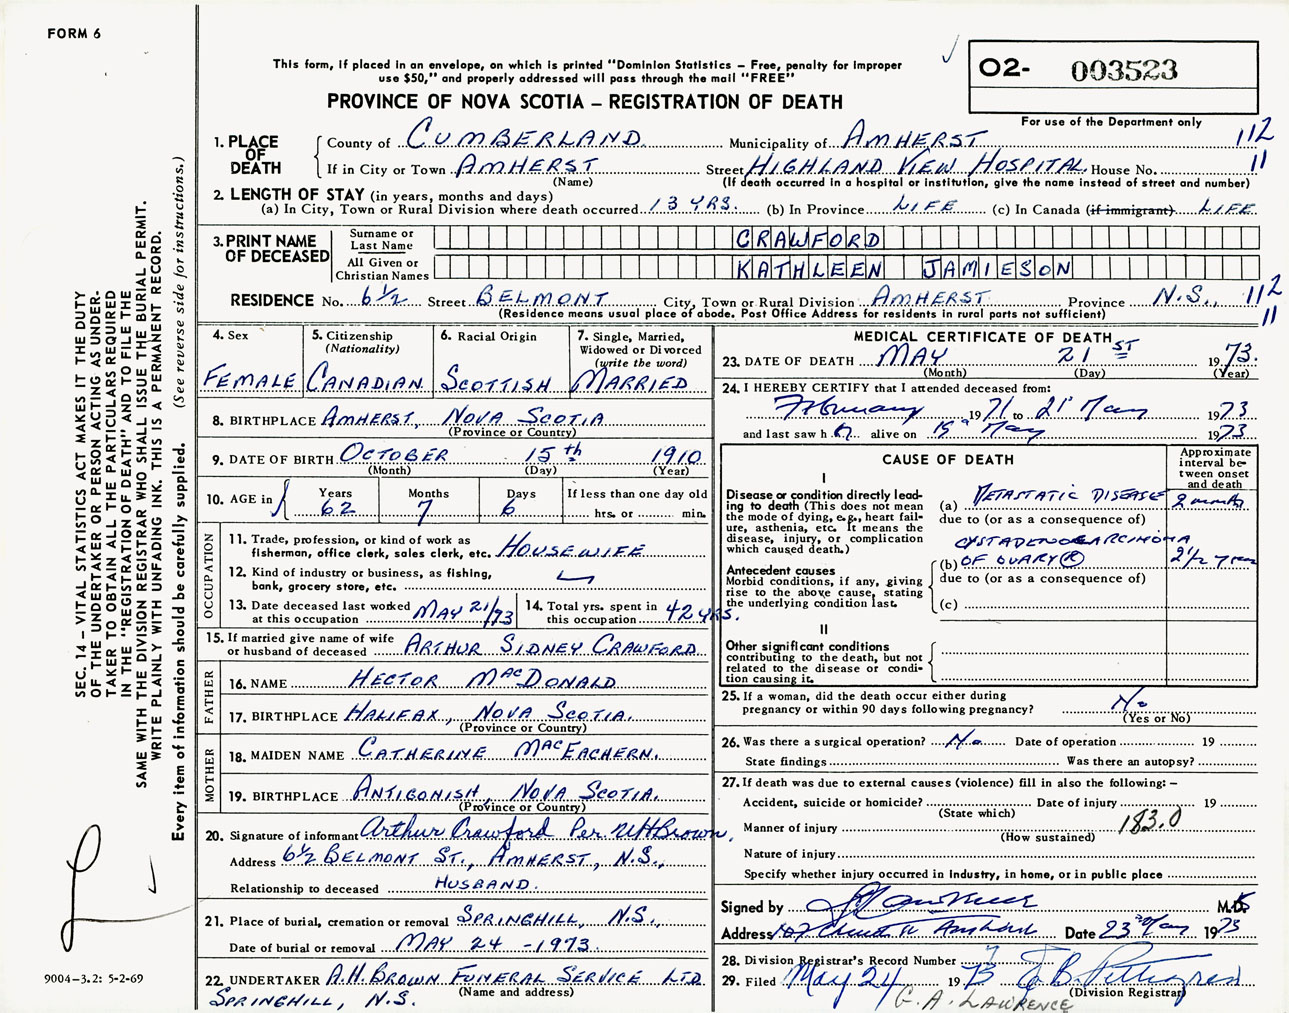 FORM 6
This form, if placed in an envelope, on which is printed "Dominion Statistics – Free, penalty for improper
use $50," and properly addressed will pass through the mail "FREE"
O2- 003523
PROVINCE OF NOVA SCOTIA – REGISTRATION OF DEATH
For use of the Department only
1. PLACE OF DEATH County of CUMBERLAND Municipality of AMHERST 112
If in City or Town AMHERST Street HIGHLAND VIEW HOSPITAL. House No. 11
(Name) (If death occurred in a hospital or institution, give the name instead of street and number)
2. LENGTH OF STAY (in years, months and days)
(a) In City, Town or Rural Division where death occurred 13 YRS. (b) In Province LIFE (c) In Canada (if immigrant) LIFE
3. PRINT NAME OF DECEASED Surname or Last Name CRAWFORD
All Given or Christian Names KATHLEEN JAMIESON
RESIDENCE No. 6½ Street BELMONT City, Town or Rural Division AMHERST Province N.S., 112
(Residence means usual place of abode. Post Office Address for residents in rural parts not sufficient) 11
4. Sex FEMALE
5. Citizenship (Nationality) CANADIAN
6. Racial Origin SCOTTISH
7. Single, Married, Widowed or Divorced (write the word) MARRIED
8. BIRTHPLACE AMHERST, NOVA SCOTIA
(Province or Country)
9. DATE OF BIRTH OCTOBER 15th 1910
(Month) (Day) (Year)
10. AGE in Years 62 Months 7 Days 6 If less than one day old hrs. or min.
OCCUPATION
11. Trade, profession, or kind of work as
fisherman, office clerk, sales clerk, etc. HOUSEWIFE
12. Kind of industry or business, as fishing,
bank, grocery store, etc.
13. Date deceased last worked at this occupation MAY 21/73
14. Total yrs. spent in this occupation 42 YRS.
15. If married give name of wife
or husband of deceased ARTHUR SIDNEY CRAWFORD
FATHER
16. NAME HECTOR MACDONALD
17. BIRTHPLACE HALIFAX, NOVA SCOTIA.
(Province or Country)
MOTHER
18. MAIDEN NAME CATHERINE MACEACHERN.
19. BIRTHPLACE ANTIGONISH, NOVA SCOTIA.
(Province or Country)
20. Signature of informant Arthur Crawford Per WHBrown,
Address 6½ BELMONT ST., AMHERST, N.S.,
Relationship to deceased HUSBAND.
21. Place of burial, cremation or removal SPRINGHILL, N.S.,
Date of burial or removal MAY 24 -1973
22. UNDERTAKER A.H. BROWN FUNERAL SERVICE LTD
(Name and address)
SPRINGHILL, N.S.
MEDICAL CERTIFICATE OF DEATH
23. DATE OF DEATH MAY 21ST 1973.
(Month) (Day) (Year)
24. I HEREBY CERTIFY that I attended deceased from:
February 1971 to 21st May 1973
and last saw h er alive on 19th May 1973
CAUSE OF DEATH
Approximate interval between onset and death
I
Disease or condition directly leading to death (This does not mean the mode of dying, e.g., heart failure, asthenia, etc. It means the disease, injury, or complication which caused death.)
(a) METASTATIC DISEASE 2 months
due to (or as a consequence of)
CYSTADENOCARCINOMA
(b) OF OVARY (R) 2½ years
Antecedent causes
Morbid conditions, if any, giving rise to the above cause, stating the underlying condition last.
due to (or as a consequence of)
(c)
II
Other significant conditions
contributing to the death, but not related to the disease or condition causing it.
25. If a woman, did the death occur either during
pregnancy or within 90 days following pregnancy? No
(Yes or No)
26. Was there a surgical operation? No Date of operation 19
State findings Was there an autopsy?
27. If death was due to external causes (violence) fill in also the following: –
Accident, suicide or homicide? Date of injury 19
(State which)
Manner of injury 183.0
(How sustained)
Nature of injury
Specify whether injury occurred in industry, in home, or in public place
Signed by M.D.
Address 107 Church St Amherst Date 23 May 1973
28. Division Registrar's Record Number
29. Filed May 24 1973
(Division Registrar)
G. A. LAWRENCE
SEC. 14 – VITAL STATISTICS ACT MAKES IT THE DUTY
OF THE UNDERTAKER OR PERSON ACTING AS UNDER-
TAKER TO OBTAIN ALL THE PARTICULARS REQUIRED
IN THE "REGISTRATION OF DEATH" AND TO FILE THE
SAME WITH THE DIVISION REGISTRAR WHO SHALL ISSUE THE BURIAL PERMIT.
WRITE PLAINLY WITH UNFADING INK. THIS IS A PERMANENT RECORD.
Every item of information should be carefully supplied. (See reverse side for instructions.)
9004-3.2: 5-2-69